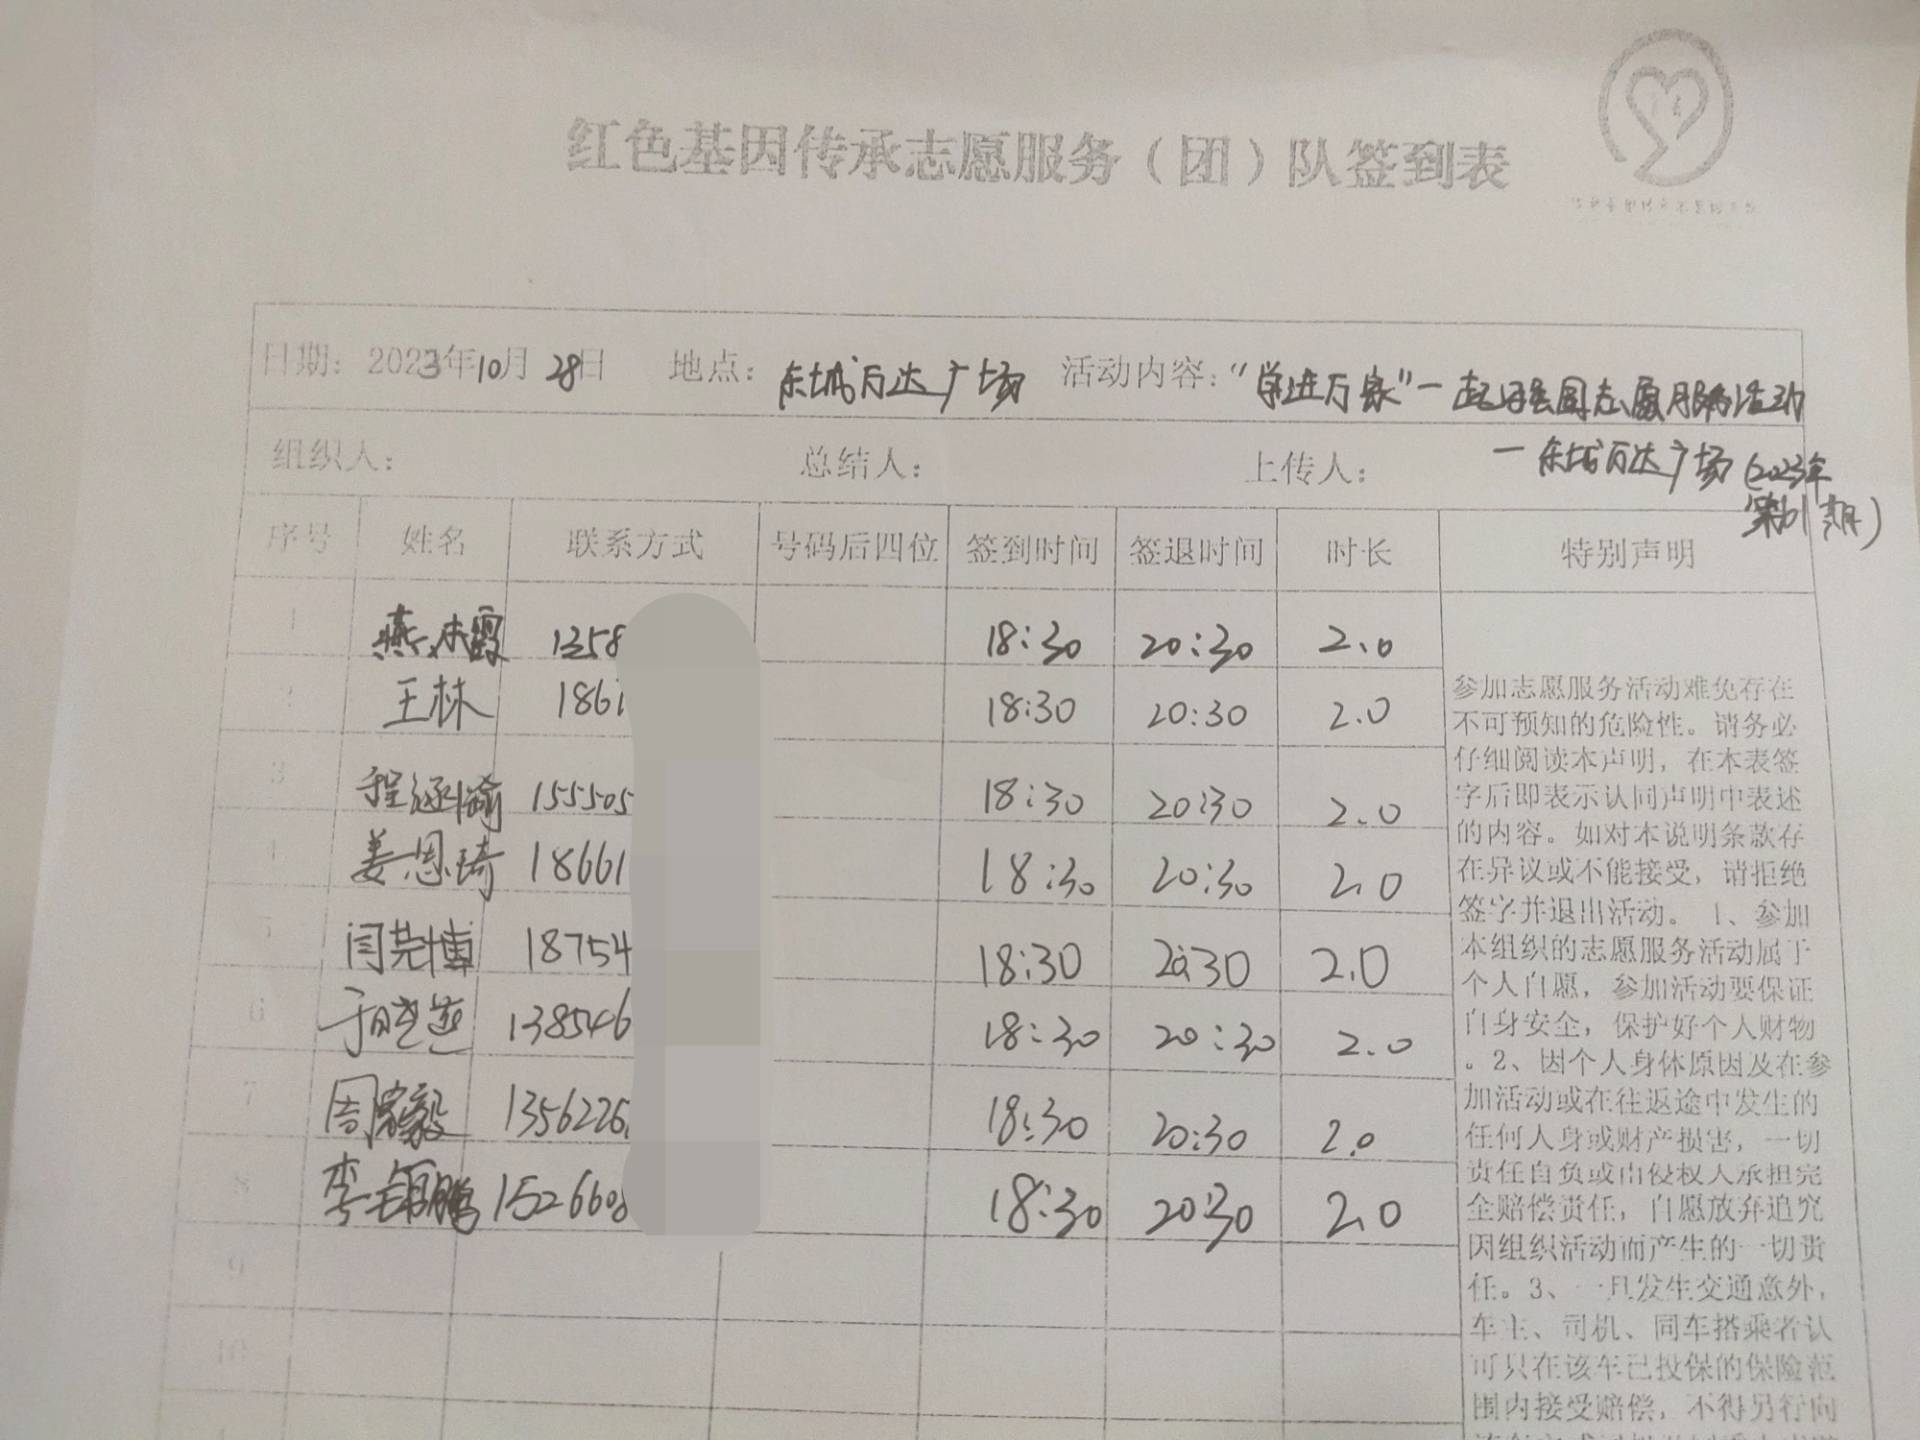 红色基因传承志愿服务（团）队签到表
日期：2023年10月28日 地点：东城万达广场 活动内容：“学进万家”一起学强国志愿服务活动
组织人： 总结人： 上传人： 一东城万达广场（2023年
第61期）
序号 姓名 联系方式 号码后四位 签到时间 签退时间 时长 特别声明
1 燕水霞 1358 18:30 20:30 2.0
2 王林 1861 18:30 20:30 2.0
3 程涵愉 155505 18:30 20:30 2.0
4 姜恩琦 18661 18:30 20:30 2.0
5 闫芸博 18754 18:30 20:30 2.0
6 于晓燕 138546 18:30 20:30 2.0
7 周家毅 1356226 18:30 20:30 2.0
8 李锦鹏 1526608 18:30 20:30 2.0
9
10
参加志愿服务活动难免存在
不可预知的危险性。请务必
仔细阅读本声明，在本表签
字后即表示认同声明中表述
的内容。如对本说明条款存
在异议或不能接受，请拒绝
签字并退出活动。 1、参加
本组织的志愿服务活动属于
个人自愿，参加活动要保证
自身安全，保护好个人财物
。2、因个人身体原因及在参
加活动或在往返途中发生的
任何人身或财产损害，一切
责任自负或由侵权人承担完
全赔偿责任，自愿放弃追究
因组织活动而产生的一切责
任。3、一旦发生交通意外，
车主、司机、同车搭乘者认
可只在该车已投保的保险范
围内接受赔偿，不得另行向